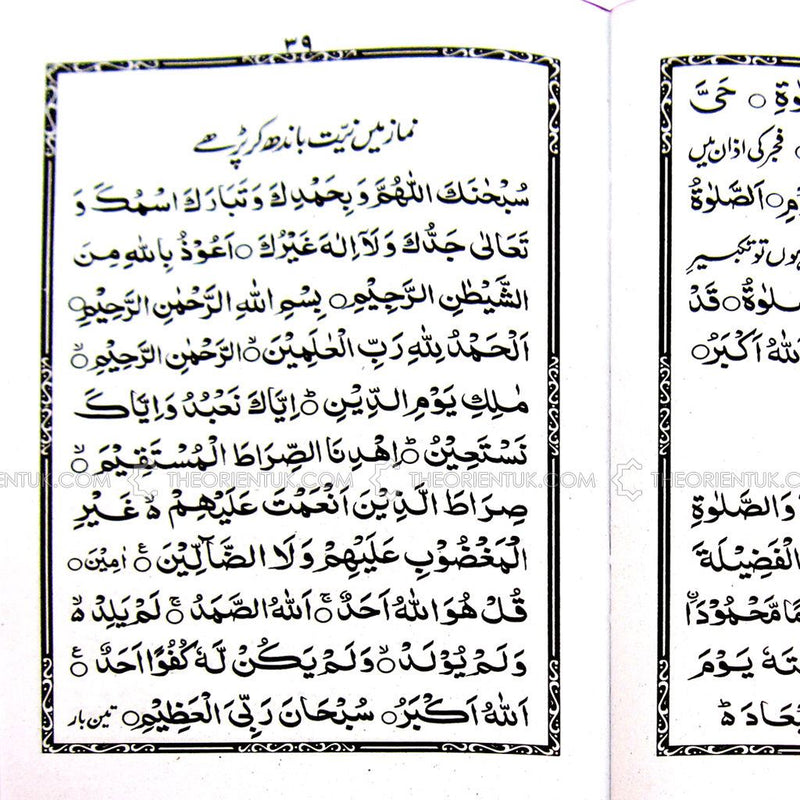 ۳۹
نماز میں نیّت باندھ کر پڑھے
سُبْحٰنَكَ اللّٰهُمَّ وَ بِحَمْدِكَ وَ تَبَارَكَ اسْمُكَ وَ
تَعَالٰى جَدُّكَ وَ لَآ اِلٰهَ غَيْرُكَ ○ اَعُوْذُ بِاللّٰهِ مِنَ
الشَّيْطٰنِ الرَّجِيْمِ ○ بِسْمِ اللّٰهِ الرَّحْمٰنِ الرَّحِيْمِ ○
اَلْحَمْدُ لِلّٰهِ رَبِّ الْعٰلَمِيْنَ ○ الرَّحْمٰنِ الرَّحِيْمِ ○
مٰلِكِ يَوْمِ الدِّيْنِ ○ اِيَّاكَ نَعْبُدُ وَ اِيَّاكَ
نَسْتَعِيْنُ ○ اِهْدِنَا الصِّرَاطَ الْمُسْتَقِيْمَ ○
صِرَاطَ الَّذِيْنَ اَنْعَمْتَ عَلَيْهِمْ ۵ غَيْرِ
الْمَغْضُوْبِ عَلَيْهِمْ وَلَا الضَّآلِّيْنَ ○ اٰمِيْنَ ○
قُلْ هُوَ اللّٰهُ اَحَدٌ ○ اَللّٰهُ الصَّمَدُ ○ لَمْ يَلِدْ ۵
وَلَمْ يُوْلَدْ ○ وَلَمْ يَكُنْ لَّهٗ كُفُوًا اَحَدٌ ○
اَللّٰهُ اَكْبَرُ ○ سُبْحَانَ رَبِّىَ الْعَظِيْمِ ○ تین بار
حَىَّ
فجر کی اذان میں
اَلصَّلٰوةُ
ہوں تو تکبیر
قَدْ
اَكْبَرُ ○
وَالصَّلٰوةِ
الْفَضِيْلَةَ
مَّحْمُوْدَا
يَوْمَ
THEORIENTUK.COM THEORIENTUK.COM THEORIENTUK.COM